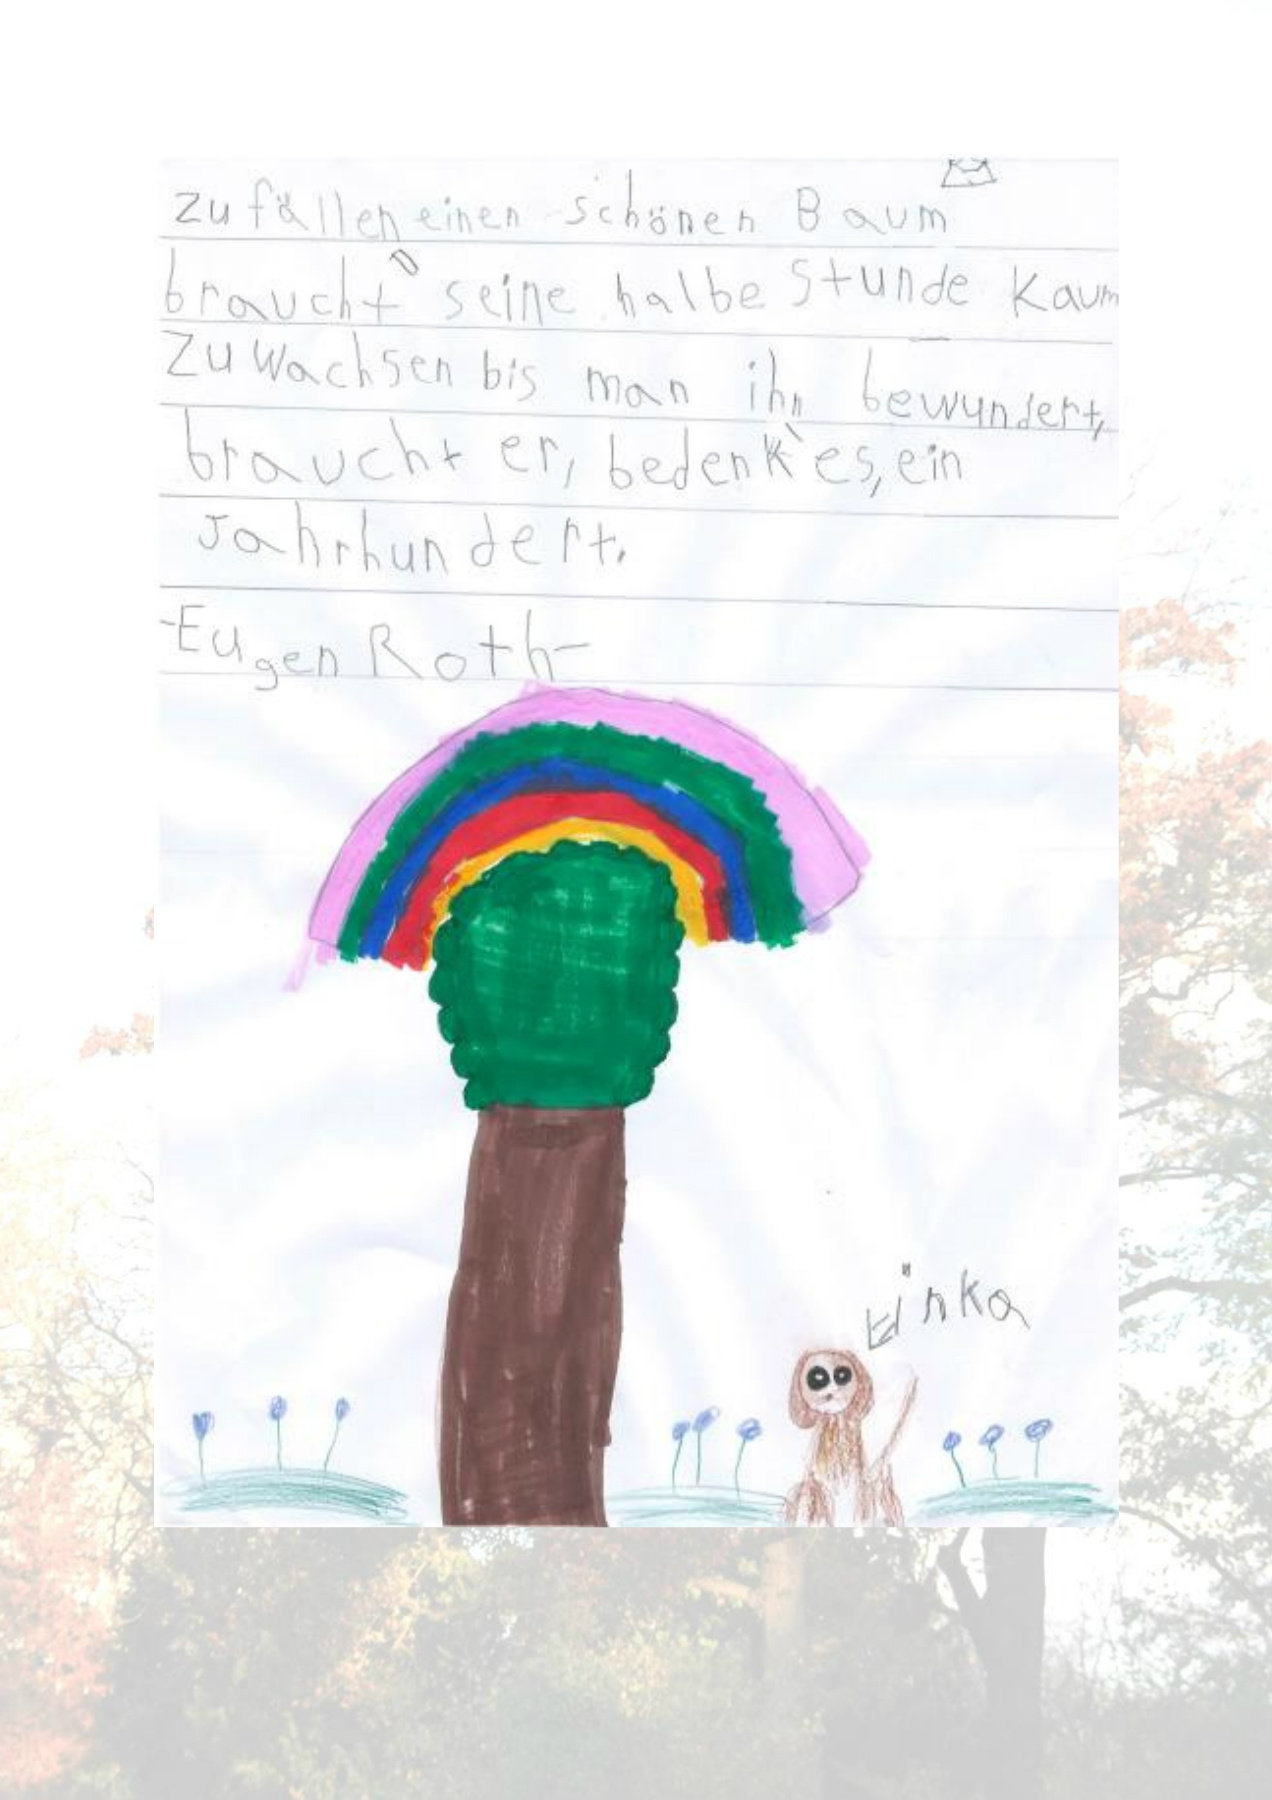 zu fällen einen schönen Baum
braucht's seine halbe Stunde Kaum
Zu Wachsen bis man ihn bewundert,
braucht er, bedenk'es, ein
Jahrhundert.
-Eugen Roth-